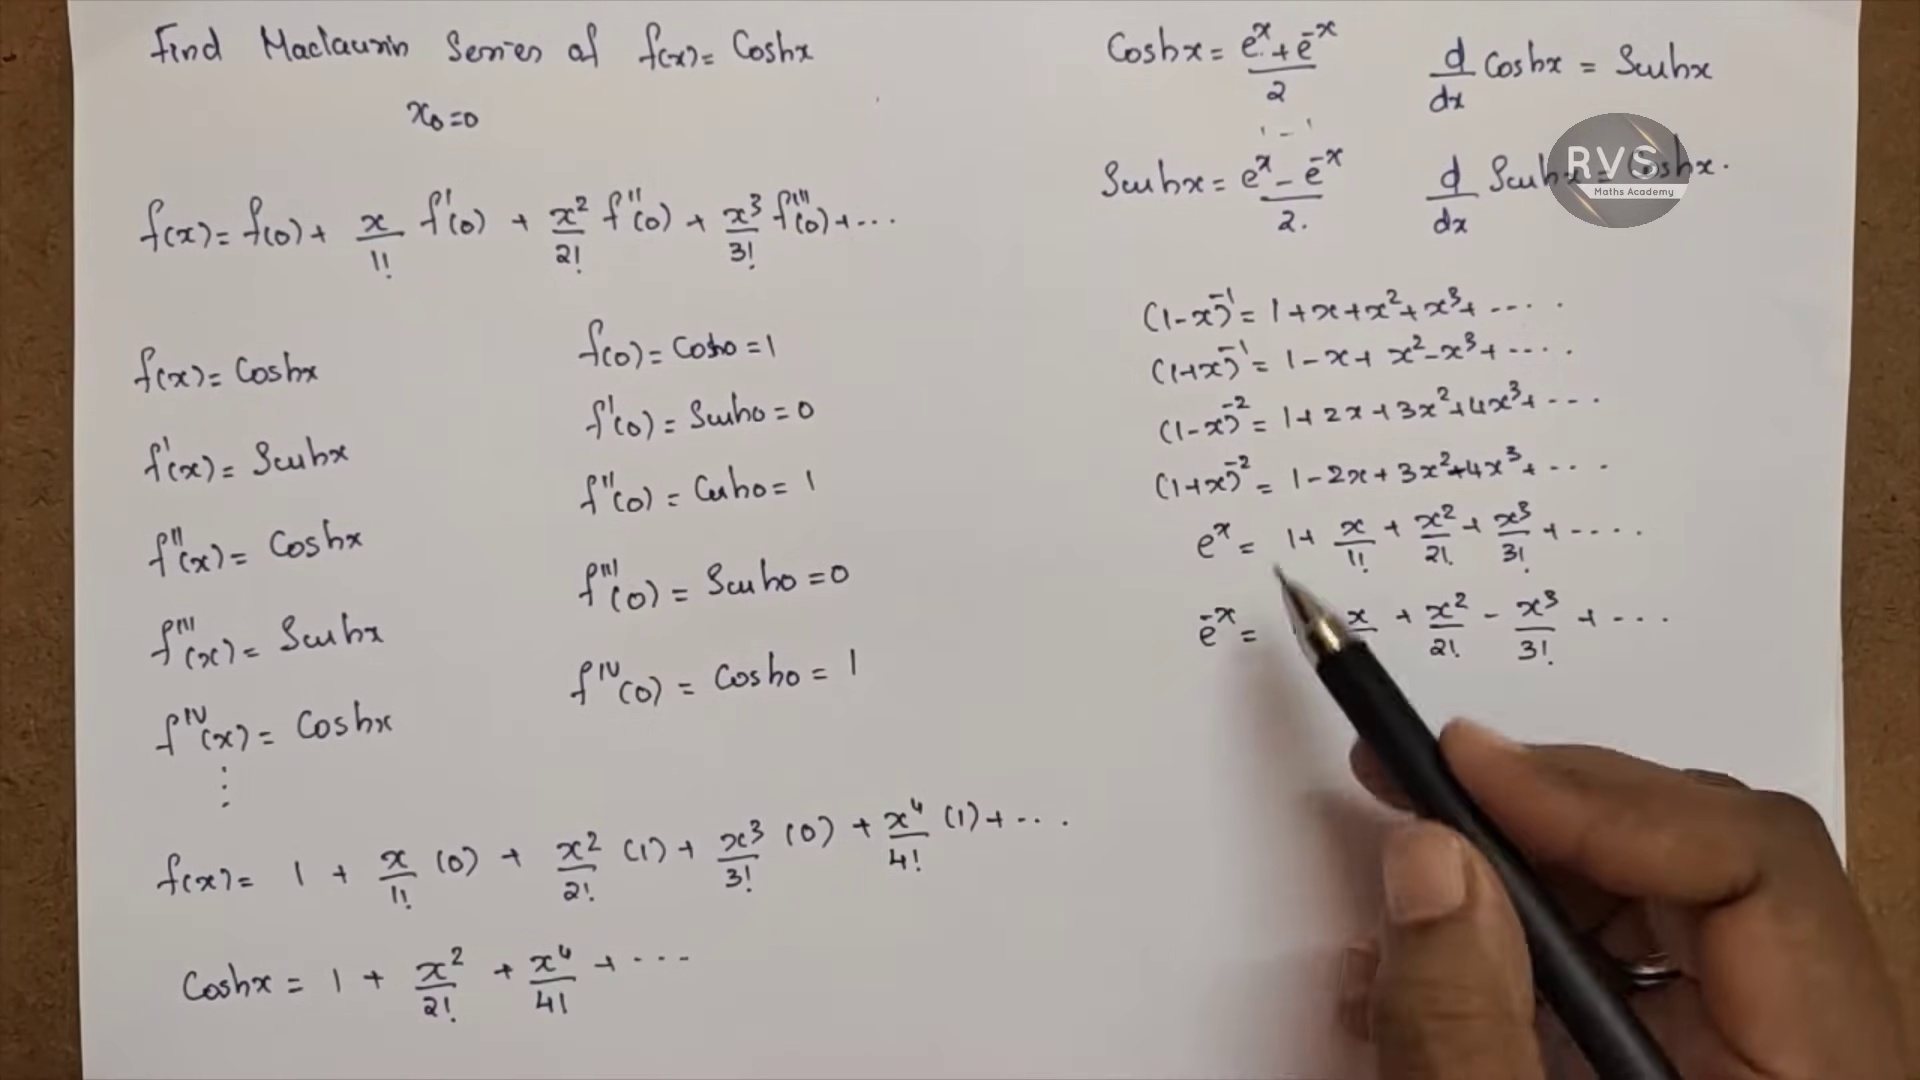 Find Maclaurin Series of f(x) = Coshx
x₀=0
f(x) = f(0) + x/1! f'(0) + x²/2! f''(0) + x³/3! f'''(0) + ...
f(x) = Coshx
f'(x) = Sinhx
f''(x) = Coshx
f'''(x) = Sinhx
f^IV(x) = Coshx
⋮
f(0) = Cosh0 = 1
f'(0) = Sinh0 = 0
f''(0) = Cosh0 = 1
f'''(0) = Sinh0 = 0
f^IV(0) = Cosh0 = 1
f(x) = 1 + x/1! (0) + x²/2! (1) + x³/3! (0) + x⁴/4! (1) + ...
Coshx = 1 + x²/2! + x⁴/4! + ...
Coshx = (e^x + e^-x)/2
d/dx Coshx = Sinhx
Sinhx = (e^x - e^-x)/2.
d/dx Sinhx = Coshx.
RVS
Maths Academy
(1-x)^-1 = 1+x+x²+x³+ ....
(1+x)^-1 = 1-x+x²-x³+ ....
(1-x)^-2 = 1+2x+3x²+4x³+ ...
(1+x)^-2 = 1-2x+3x²-4x³+ ...
e^x = 1 + x/1! + x²/2! + x³/3! + ....
e^-x = x + x²/2! - x³/3! + ...